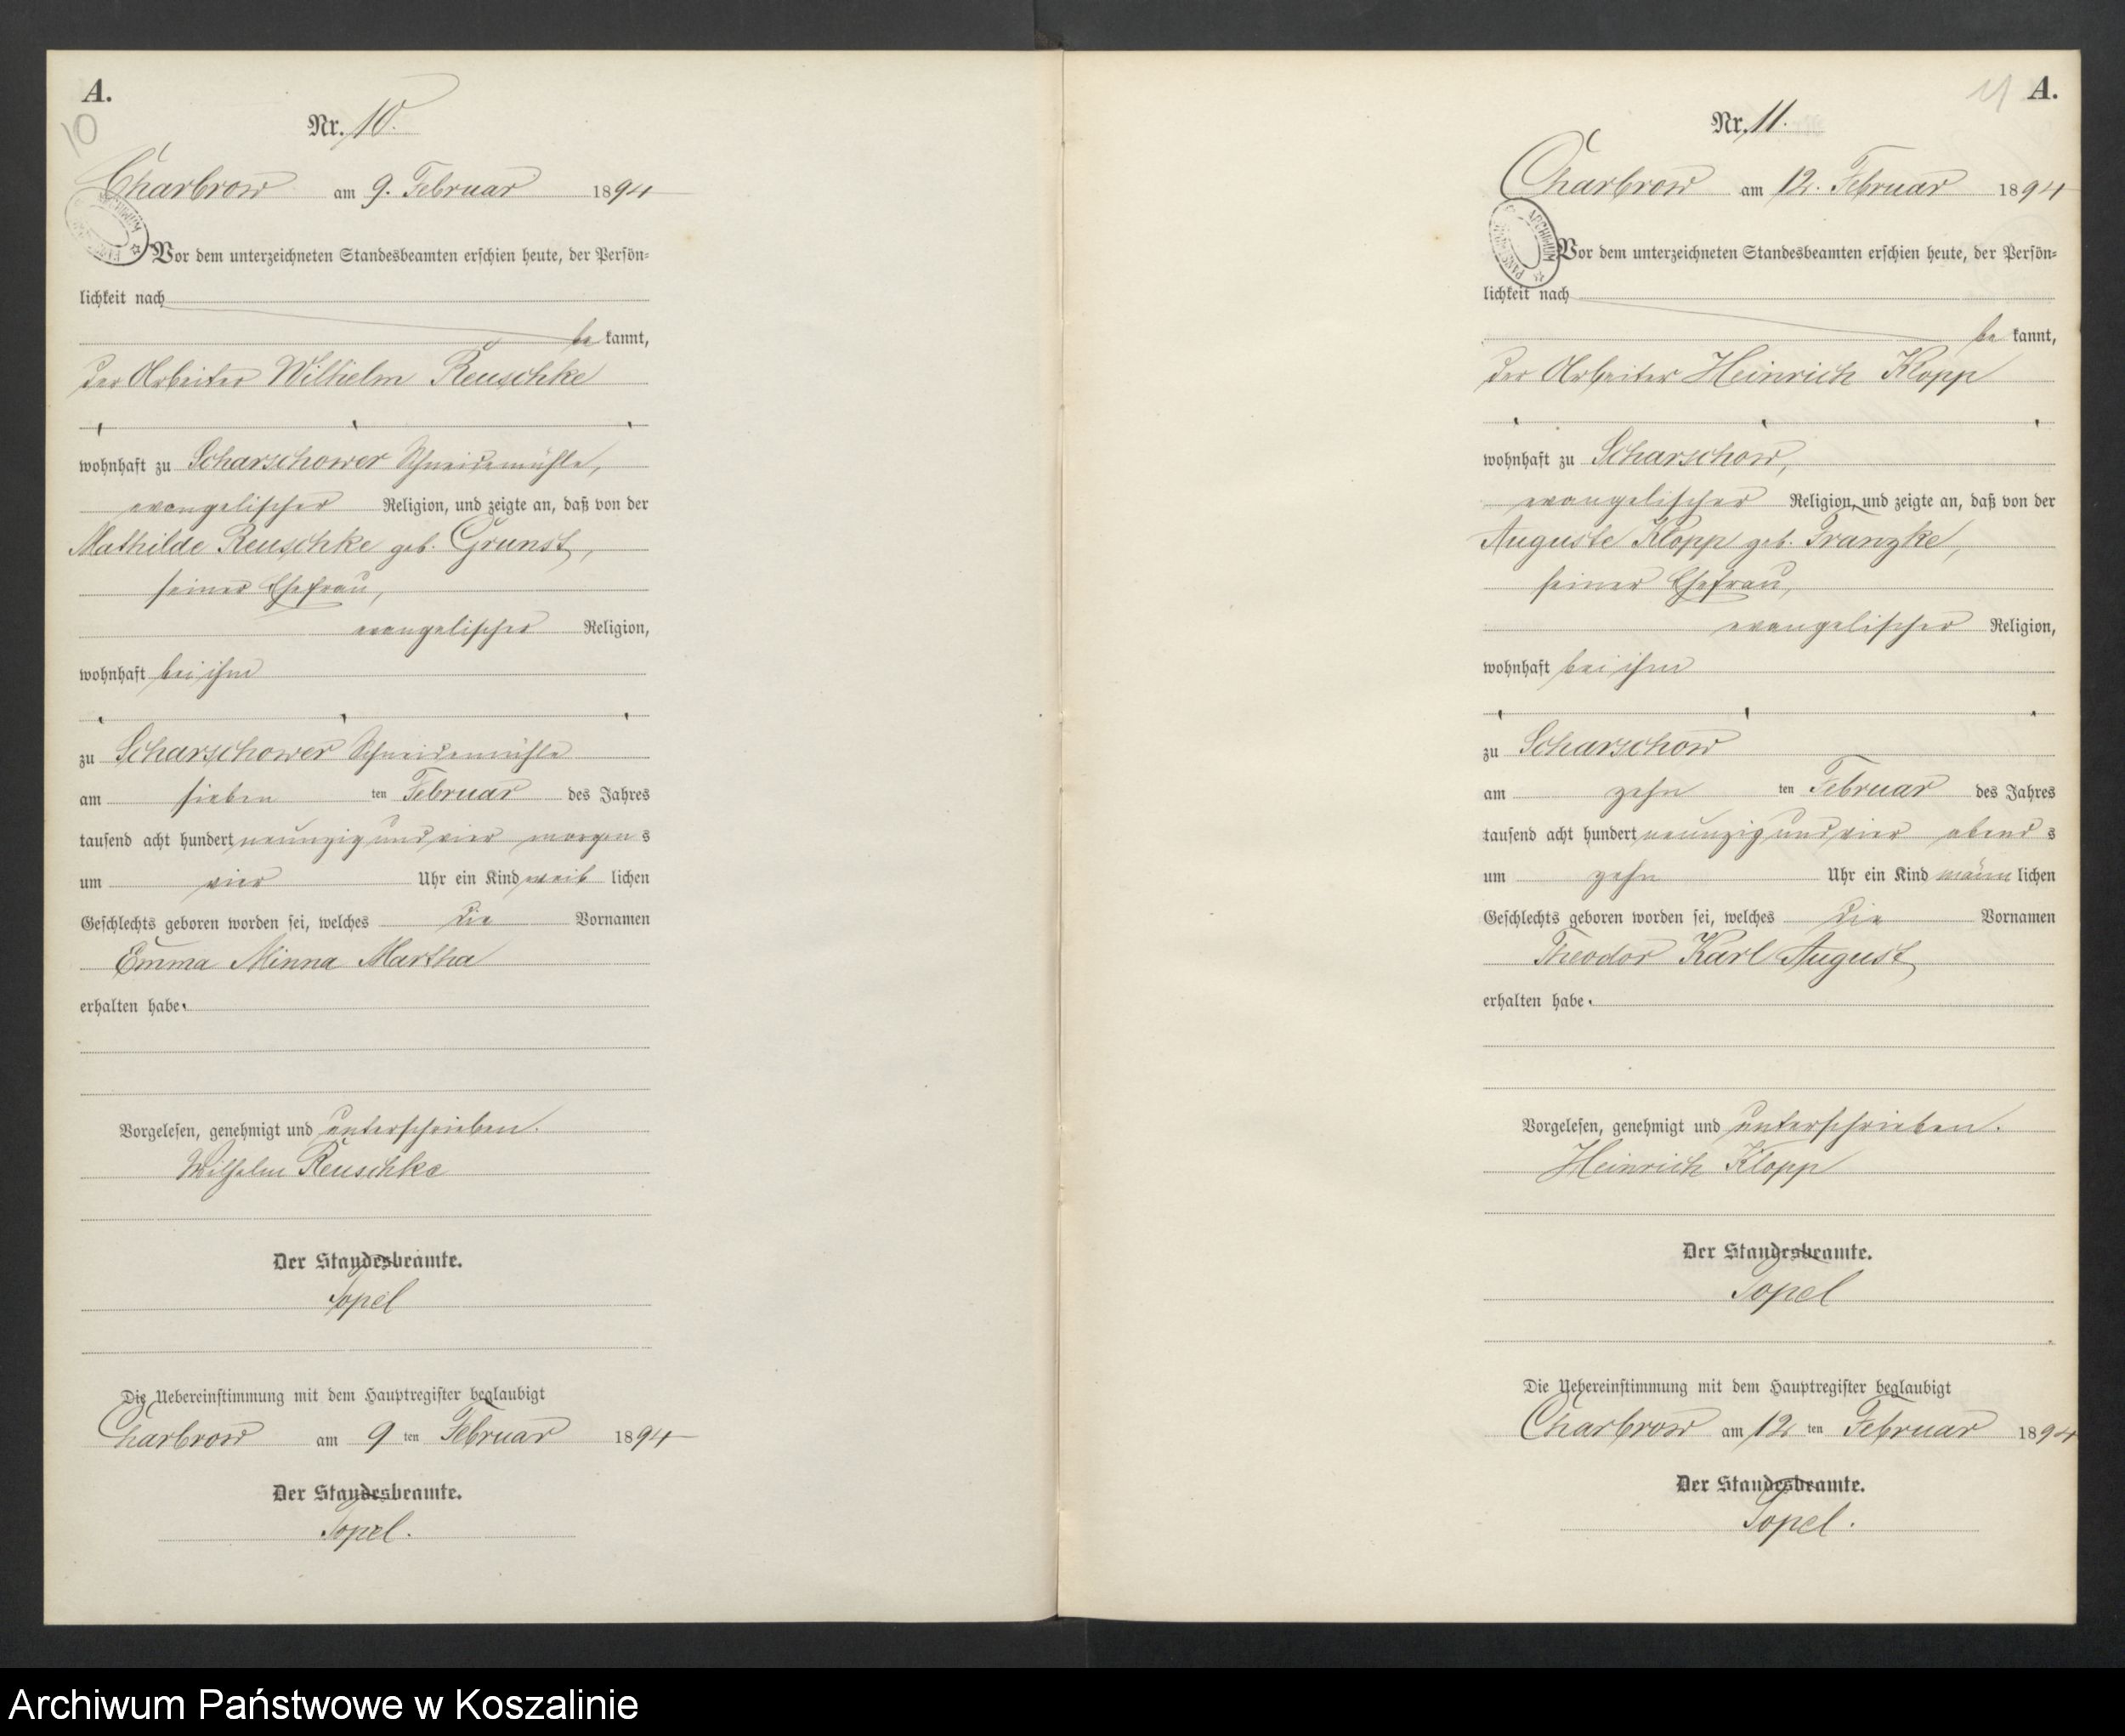 A.
10
Nr. 10.
Charbrow am 9. Februar 1894
Vor dem unterzeichneten Standesbeamten erschien heute, der Persön-
lichkeit nach
be kannt,
der Arbeiter Wilhelm Reuschke
wohnhaft zu Scharschower Schneidemühle,
evangelischer Religion, und zeigte an, daß von der
Mathilde Reuschke geb. Grunst,
seiner Ehefrau,
evangelischer Religion,
wohnhaft bei ihm
zu Scharschower Schneidemühle
am sieben ten Februar des Jahres
tausend acht hundert neunzig und vier morgen s
um vier Uhr ein Kind weib lichen
Geschlechts geboren worden sei, welches die Vornamen
Emma Minna Martha
erhalten habe.
Vorgelesen, genehmigt und unterschrieben.
Wilhelm Reuschke
Der Standesbeamte.
Topel
Die Uebereinstimmung mit dem Hauptregister beglaubigt
Charbrow am 9 ten Februar 1894
Der Standesbeamte.
Topel.
11 A.
Nr. 11.
Charbrow am 12. Februar 1894
ARCHIWUM
Vor dem unterzeichneten Standesbeamten erschien heute, der Persön-
lichkeit nach
be kannt,
der Arbeiter Heinrich Klopp
wohnhaft zu Scharschow,
evangelischer Religion, und zeigte an, daß von der
Auguste Klopp geb. Franzke,
seiner Ehefrau,
evangelischer Religion,
wohnhaft bei ihm
zu Scharschow
am zehn ten Februar des Jahres
tausend acht hundert neunzig und vier abend s
um zehn Uhr ein Kind männ lichen
Geschlechts geboren worden sei, welches die Vornamen
Theodor Karl August
erhalten habe.
Vorgelesen, genehmigt und unterschrieben.
Heinrich Klopp
Der Standesbeamte.
Topel
Die Uebereinstimmung mit dem Hauptregister beglaubigt
Charbrow am 12 ten Februar 1894
Der Standesbeamte.
Topel.
Archiwum Państwowe w Koszalinie